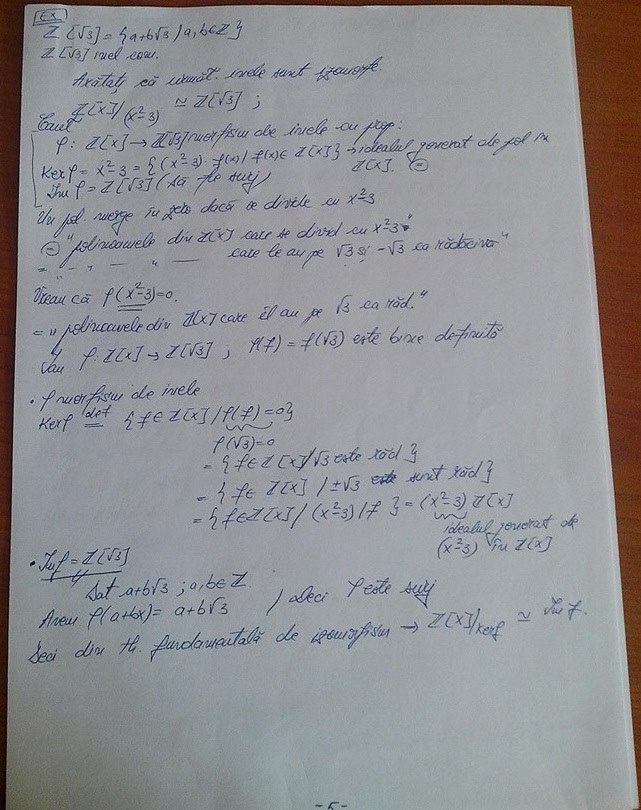 Ex
ℤ[√3] = {a+b√3 / a,b∈ℤ}
ℤ[√3] inel com.
Arătați că următ. inele sunt izomorfe.
ℤ[x]/(x²-3) ≅ ℤ[√3] ;
Caut
φ: ℤ[x] → ℤ[√3] morfism de inele cu prop:
Ker φ = x²-3 = {(x²-3)· f(x) / f(x)∈ ℤ[x]} → idealul generat de pol în
ℤ[x]. (=)
Im φ = ℤ[√3] (să fie surj)
Un pol. merge în zero dacă se divide cu x²-3
(=) "polinoamele din ℤ[x] care se divid cu x²-3"
= — " — " — " — care le au pe √3 și -√3 ca rădăcină"
Vreau că φ(x²-3)=0.
= "polinoamele din ℤ[x] care îl au pe √3 ca răd."
Iau φ: ℤ[x] → ℤ[√3] ; φ(f) = f(√3) este bine definită
• φ morfism de inele
Ker φ def= {f∈ ℤ[x] / φ(f)=0}
f(√3)=0
= {f∈ ℤ[x]/√3 este răd}
= {f∈ ℤ[x] / ±√3 sunt răd}
= {f∈ℤ[x] / (x²-3) / f } = (x²-3) ℤ[x]
idealul generat de
(x²-3) în ℤ[x]
• Im φ = ℤ[√3]
Dat a+b√3 ; a,b∈ ℤ
Avem φ(a+bx) = a+b√3 , deci φ este surj
Deci din th. fundamentală de izomorfism → ℤ[x]/Ker φ ≃ Im φ.
-5-